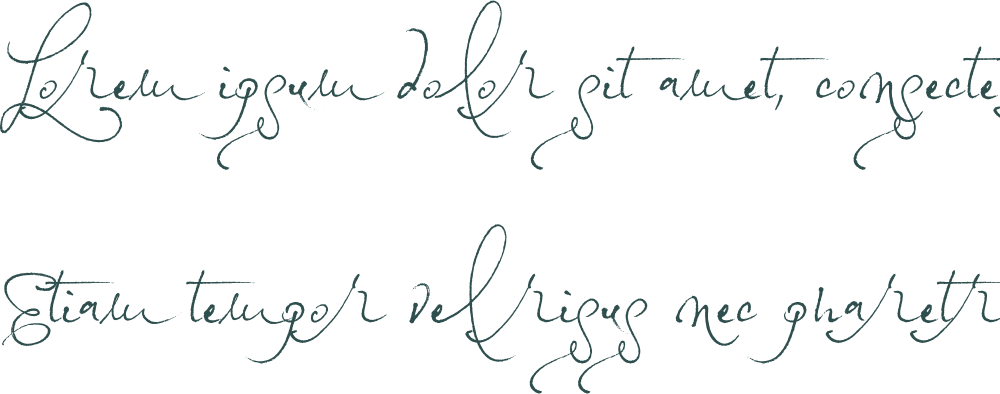 Lorem ipsum dolor sit amet, consecte
Etiam tempor vel risus nec pharetr